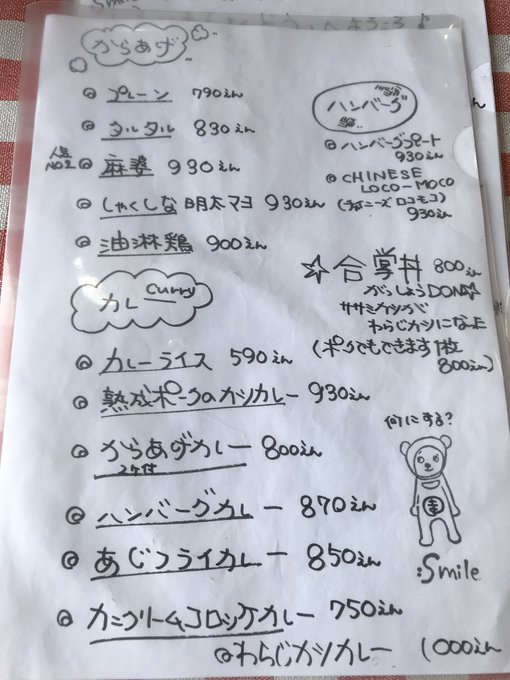 からあげ
プレーン 790えん
タルタル 830えん
人気 NO2
麻婆 930えん
しゃくしな明太マヨ 930えん
油淋鶏 900えん
ハンバーグ
ハンバーグプレート
930えん
CHINESE
LOCO-MOCO
(チャイニーズロコモコ)
930えん
☆合掌丼 800えん
がっしょうDON☆
ササミカツが
わらじカツになった
(ポークでもできます1枚
800えん)
カレー Curry
カレーライス 590えん
熟成ポークのカツカレー 930えん
からあげカレー 800えん
2ケ付
ハンバーグカレー 870えん
あじフライカレー 850えん
カニクリームコロッケカレー 750えん
わらじカツカレー 1000えん
何にする?
:Smile